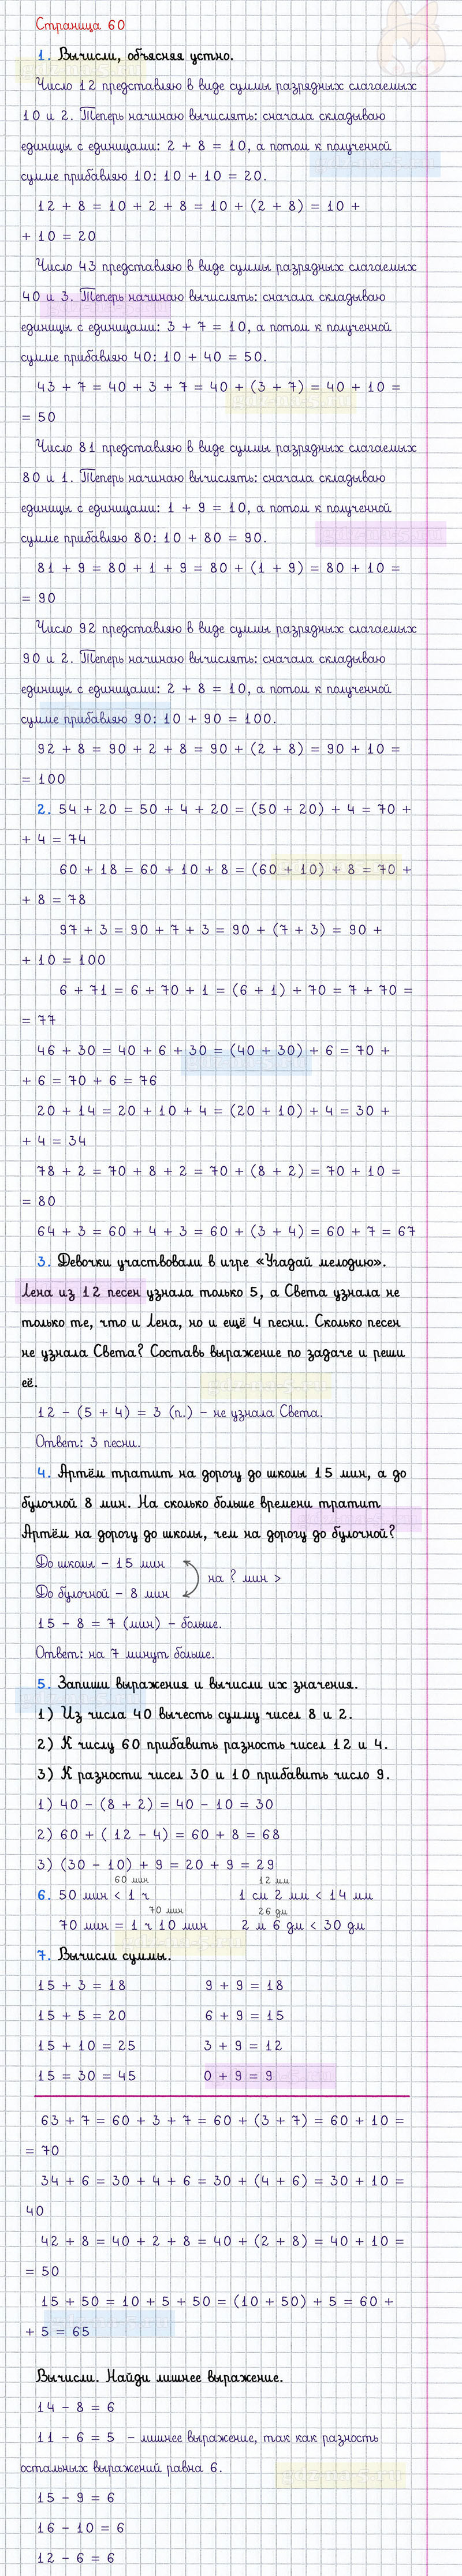 Страница 60
1. Вычисли, объясняя устно.
Число 12 представляю в виде суммы разрядных слагаемых
10 и 2. Теперь начинаю вычислять: сначала складываю
единицы с единицами: 2 + 8 = 10, а потом к полученной
сумме прибавляю 10: 10 + 10 = 20.
12 + 8 = 10 + 2 + 8 = 10 + (2 + 8) = 10 +
+ 10 = 20
Число 43 представляю в виде суммы разрядных слагаемых
40 и 3. Теперь начинаю вычислять: сначала складываю
единицы с единицами: 3 + 7 = 10, а потом к полученной
сумме прибавляю 40: 10 + 40 = 50.
43 + 7 = 40 + 3 + 7 = 40 + (3 + 7) = 40 + 10 =
= 50
Число 81 представляю в виде суммы разрядных слагаемых
80 и 1. Теперь начинаю вычислять: сначала складываю
единицы с единицами: 1 + 9 = 10, а потом к полученной
сумме прибавляю 80: 10 + 80 = 90.
81 + 9 = 80 + 1 + 9 = 80 + (1 + 9) = 80 + 10 =
= 90
Число 92 представляю в виде суммы разрядных слагаемых
90 и 2. Теперь начинаю вычислять: сначала складываю
единицы с единицами: 2 + 8 = 10, а потом к полученной
сумме прибавляю 90: 10 + 90 = 100.
92 + 8 = 90 + 2 + 8 = 90 + (2 + 8) = 90 + 10 =
= 100
2. 54 + 20 = 50 + 4 + 20 = (50 + 20) + 4 = 70 +
+ 4 = 74
60 + 18 = 60 + 10 + 8 = (60 + 10) + 8 = 70 +
+ 8 = 78
97 + 3 = 90 + 7 + 3 = 90 + (7 + 3) = 90 +
+ 10 = 100
6 + 71 = 6 + 70 + 1 = (6 + 1) + 70 = 7 + 70 =
= 77
46 + 30 = 40 + 6 + 30 = (40 + 30) + 6 = 70 +
+ 6 = 70 + 6 = 76
20 + 14 = 20 + 10 + 4 = (20 + 10) + 4 = 30 +
+ 4 = 34
78 + 2 = 70 + 8 + 2 = 70 + (8 + 2) = 70 + 10 =
= 80
64 + 3 = 60 + 4 + 3 = 60 + (3 + 4) = 60 + 7 = 67
3. Девочки участвовали в игре «Угадай мелодию».
Лена из 12 песен узнала только 5, а Света узнала не
только те, что и Лена, но и ещё 4 песни. Сколько песен
не узнала Света? Составь выражение по задаче и реши
её.
12 - (5 + 4) = 3 (п.) - не узнала Света.
Ответ: 3 песни.
4. Артём тратит на дорогу до школы 15 мин, а до
булочной 8 мин. На сколько больше времени тратит
Артём на дорогу до школы, чем на дорогу до булочной?
До школы - 15 мин
на ? мин >
До булочной - 8 мин
15 - 8 = 7 (мин) - больше.
Ответ: на 7 минут больше.
5. Запиши выражения и вычисли их значения.
1) Из числа 40 вычесть сумму чисел 8 и 2.
2) К числу 60 прибавить разность чисел 12 и 4.
3) К разности чисел 30 и 10 прибавить число 9.
1) 40 - (8 + 2) = 40 - 10 = 30
2) 60 + ( 12 - 4) = 60 + 8 = 68
3) (30 - 10) + 9 = 20 + 9 = 29
60 мин 12 мм
6. 50 мин < 1 ч 1 см 2 мм < 14 мм
70 мин 26 дм
70 мин = 1 ч 10 мин 2 м 6 дм < 30 дм
7. Вычисли суммы.
15 + 3 = 18 9 + 9 = 18
15 + 5 = 20 6 + 9 = 15
15 + 10 = 25 3 + 9 = 12
15 = 30 = 45 0 + 9 = 9
63 + 7 = 60 + 3 + 7 = 60 + (3 + 7) = 60 + 10 =
= 70
34 + 6 = 30 + 4 + 6 = 30 + (4 + 6) = 30 + 10 =
40
42 + 8 = 40 + 2 + 8 = 40 + (2 + 8) = 40 + 10 =
= 50
15 + 50 = 10 + 5 + 50 = (10 + 50) + 5 = 60 +
+ 5 = 65
Вычисли. Найди лишнее выражение.
14 - 8 = 6
11 - 6 = 5 - лишнее выражение, так как разность
остальных выражений равна 6.
15 - 9 = 6
16 - 10 = 6
12 - 6 = 6